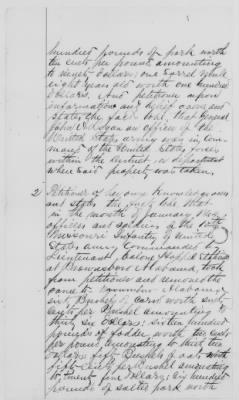 hundred pounds of pork worth
ten cents per pound amounting
to ninety dollars; one sorrel mule
eight years old worth one hundred
dollars. And petitioner upon
information and belief avers and
states the fact to be, that General
John A Logan an officer of the
United States army was in com-
mand of the United States forces
within the district or department
where said property was taken.
2 Petitioner of her own knowledge avers
and states the fact to be that
in the month of January 1864
officers and soldiers of the 10th
Missouri Infantry of United
States army Commanded by
Lieutenant Colony
at Alabama, took
from petitioner and removed the
same to Alabama
sixty Bushels of Corn worth sixty
cents per Bushel amounting to
thirty six dollars; Sixteen hundred
pounds of fodder worth two cents
per pound, amounting to thirty two
dollars; fifty Bushels of oats worth
fifty cents per Bushel amounting
to twenty five dollars; six hundred
pounds of salted pork worth